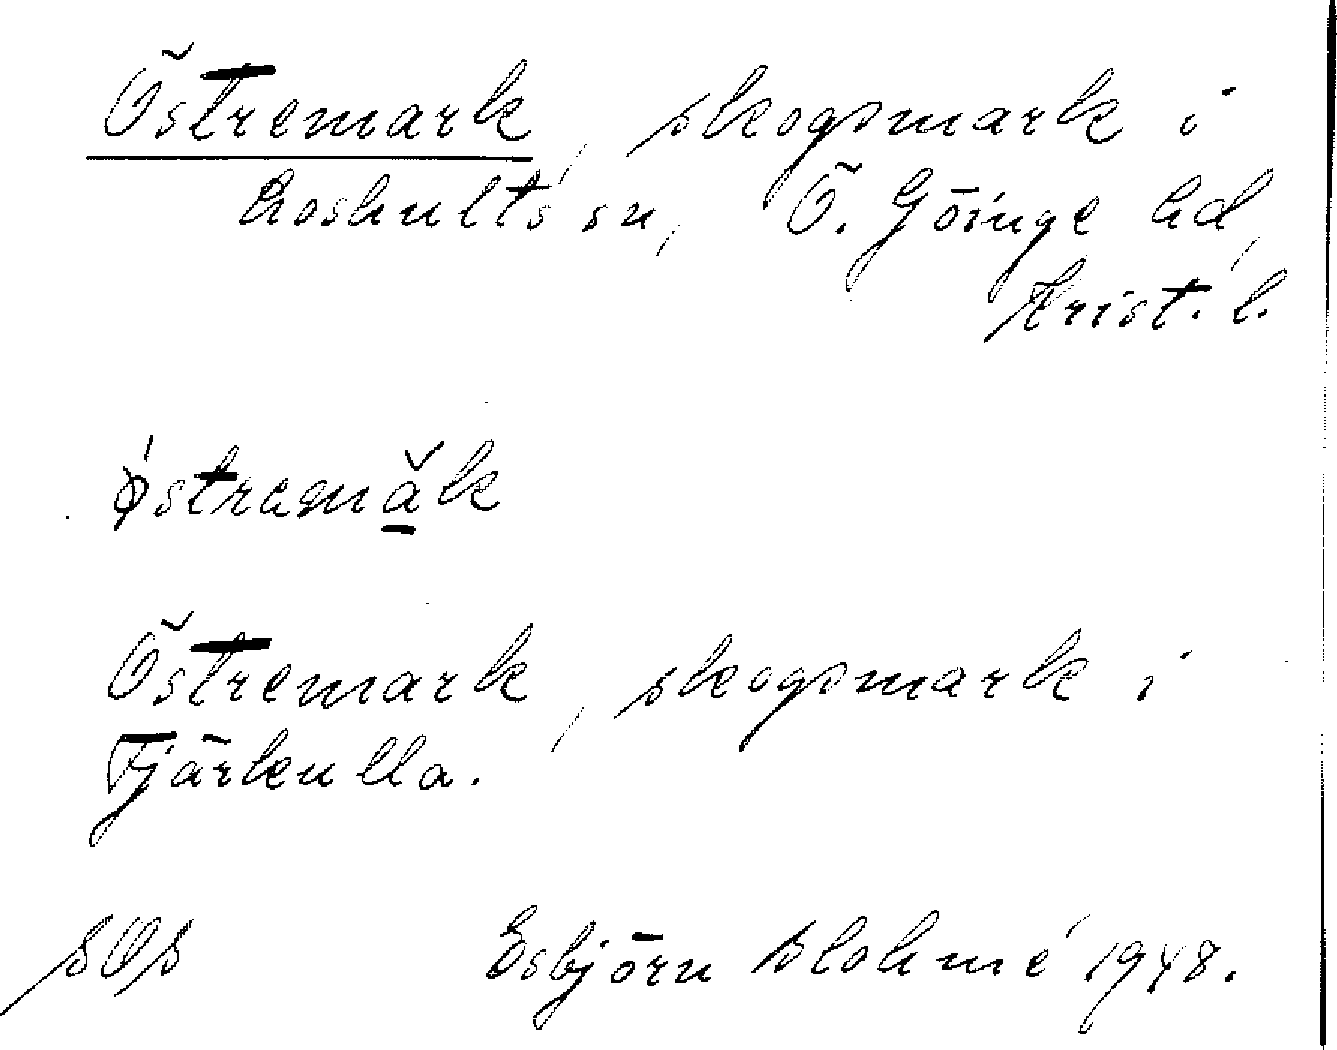 Östremark, skogsmark i
Loshults sn, Ö. Göinge hd,
Krist. l.
ǿstremąk
Östremark, skogsmark i
Fjärkulla.
Esbjörn 1948.